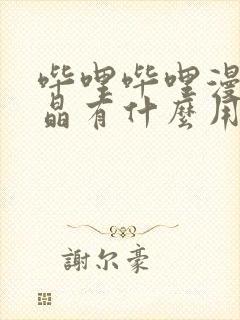 哔哩哔哩漫
晶有什麼用
謝尔豪